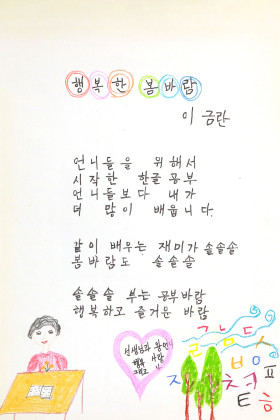 행복한 봄바람
이 금란
언니들을 위해서
시작한 한글공부
언니들보다 내가
더 많이 배웁니다.
같이 배우는 재미가 솔솔솔
봄바람도 솔솔솔
솔솔솔 부는 공부바람
행복하고 즐거운 바람
선생님과
행복
사랑